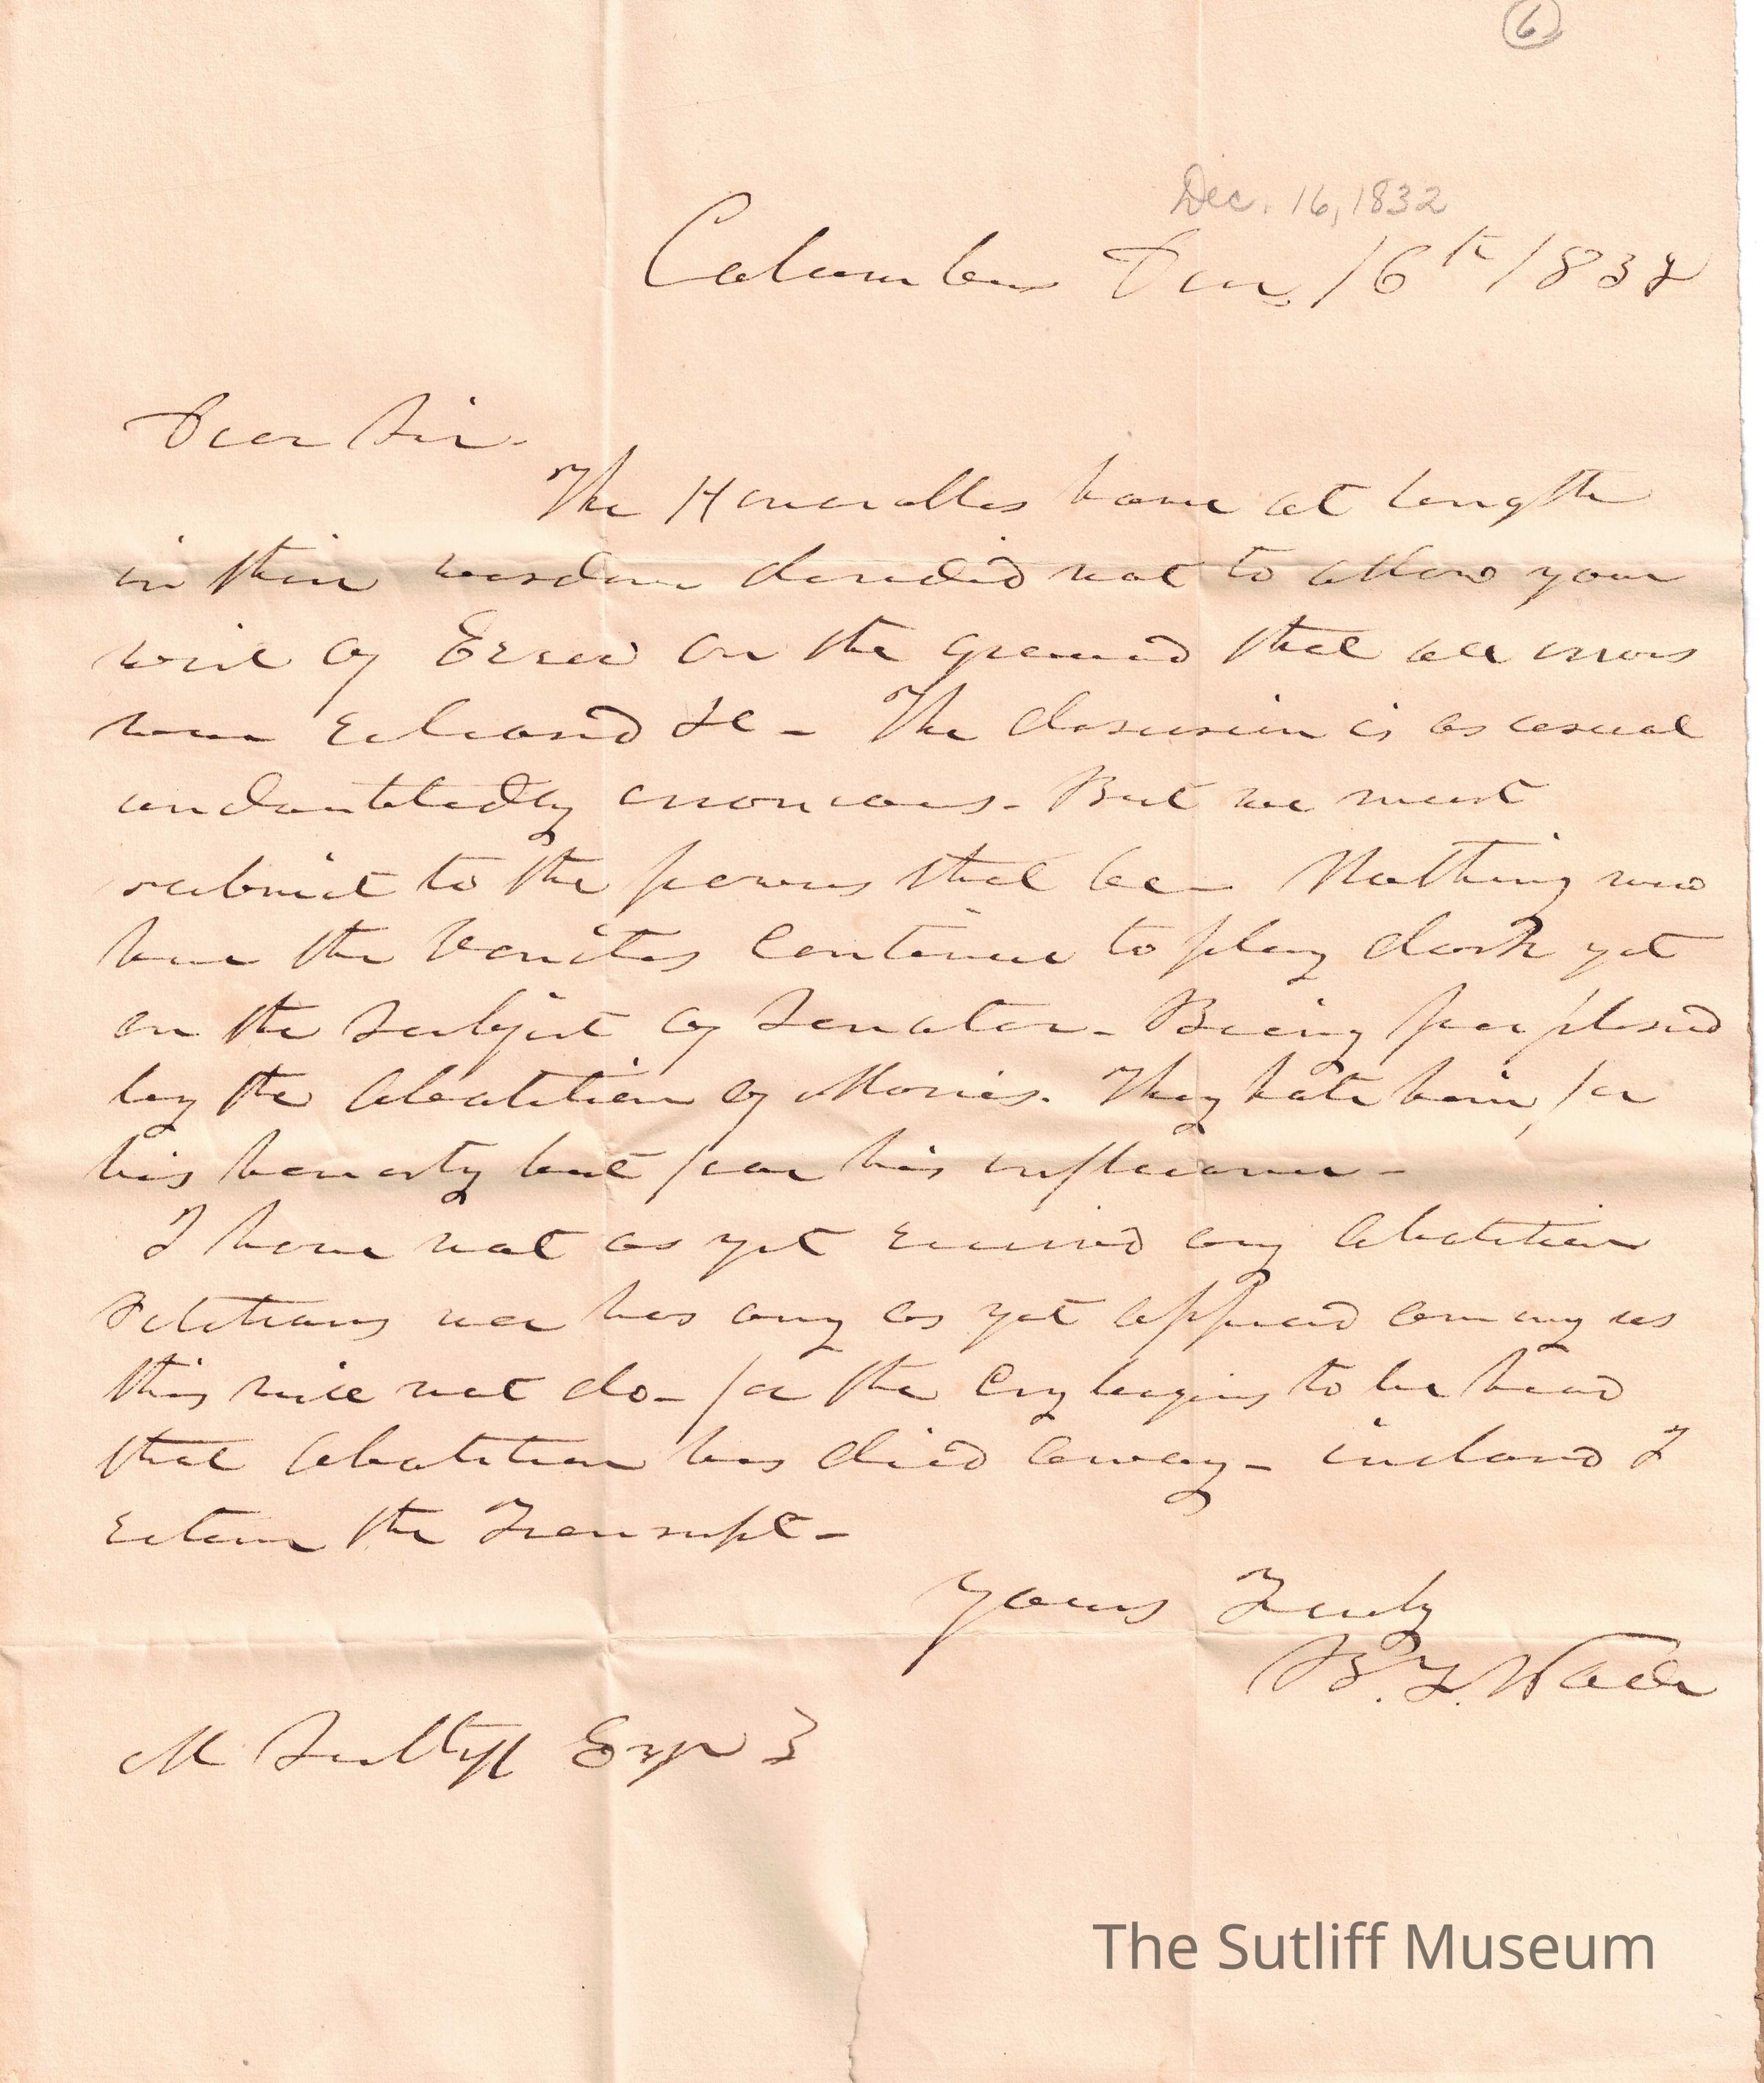 6
Dec. 16, 1832
Columbus Dec. 16th 1838
Dear Sir.
The Honorables have at length
in their wisdom decided not to allow your
writ of Error on the ground that all errors
were Released &c - The decision is as usual
undoubtedly erroneous - But we must
submit to the powers that be - Nothing new
here the Vanites continue to play dark yet
on the Subject of Senator - Being perplexed
by the Abolition of Morris. They hate him for
his honesty but fear his influence -
I have not as yet received any Abolition
Petitions nor has any as yet appeared among us
this will not do - for the Cry begins to be heard
that Abolition has died away - inclosed I
return the Transcript -
Yours Truly
B. F. Wade
M Sutliff Esqr }
The Sutliff Museum